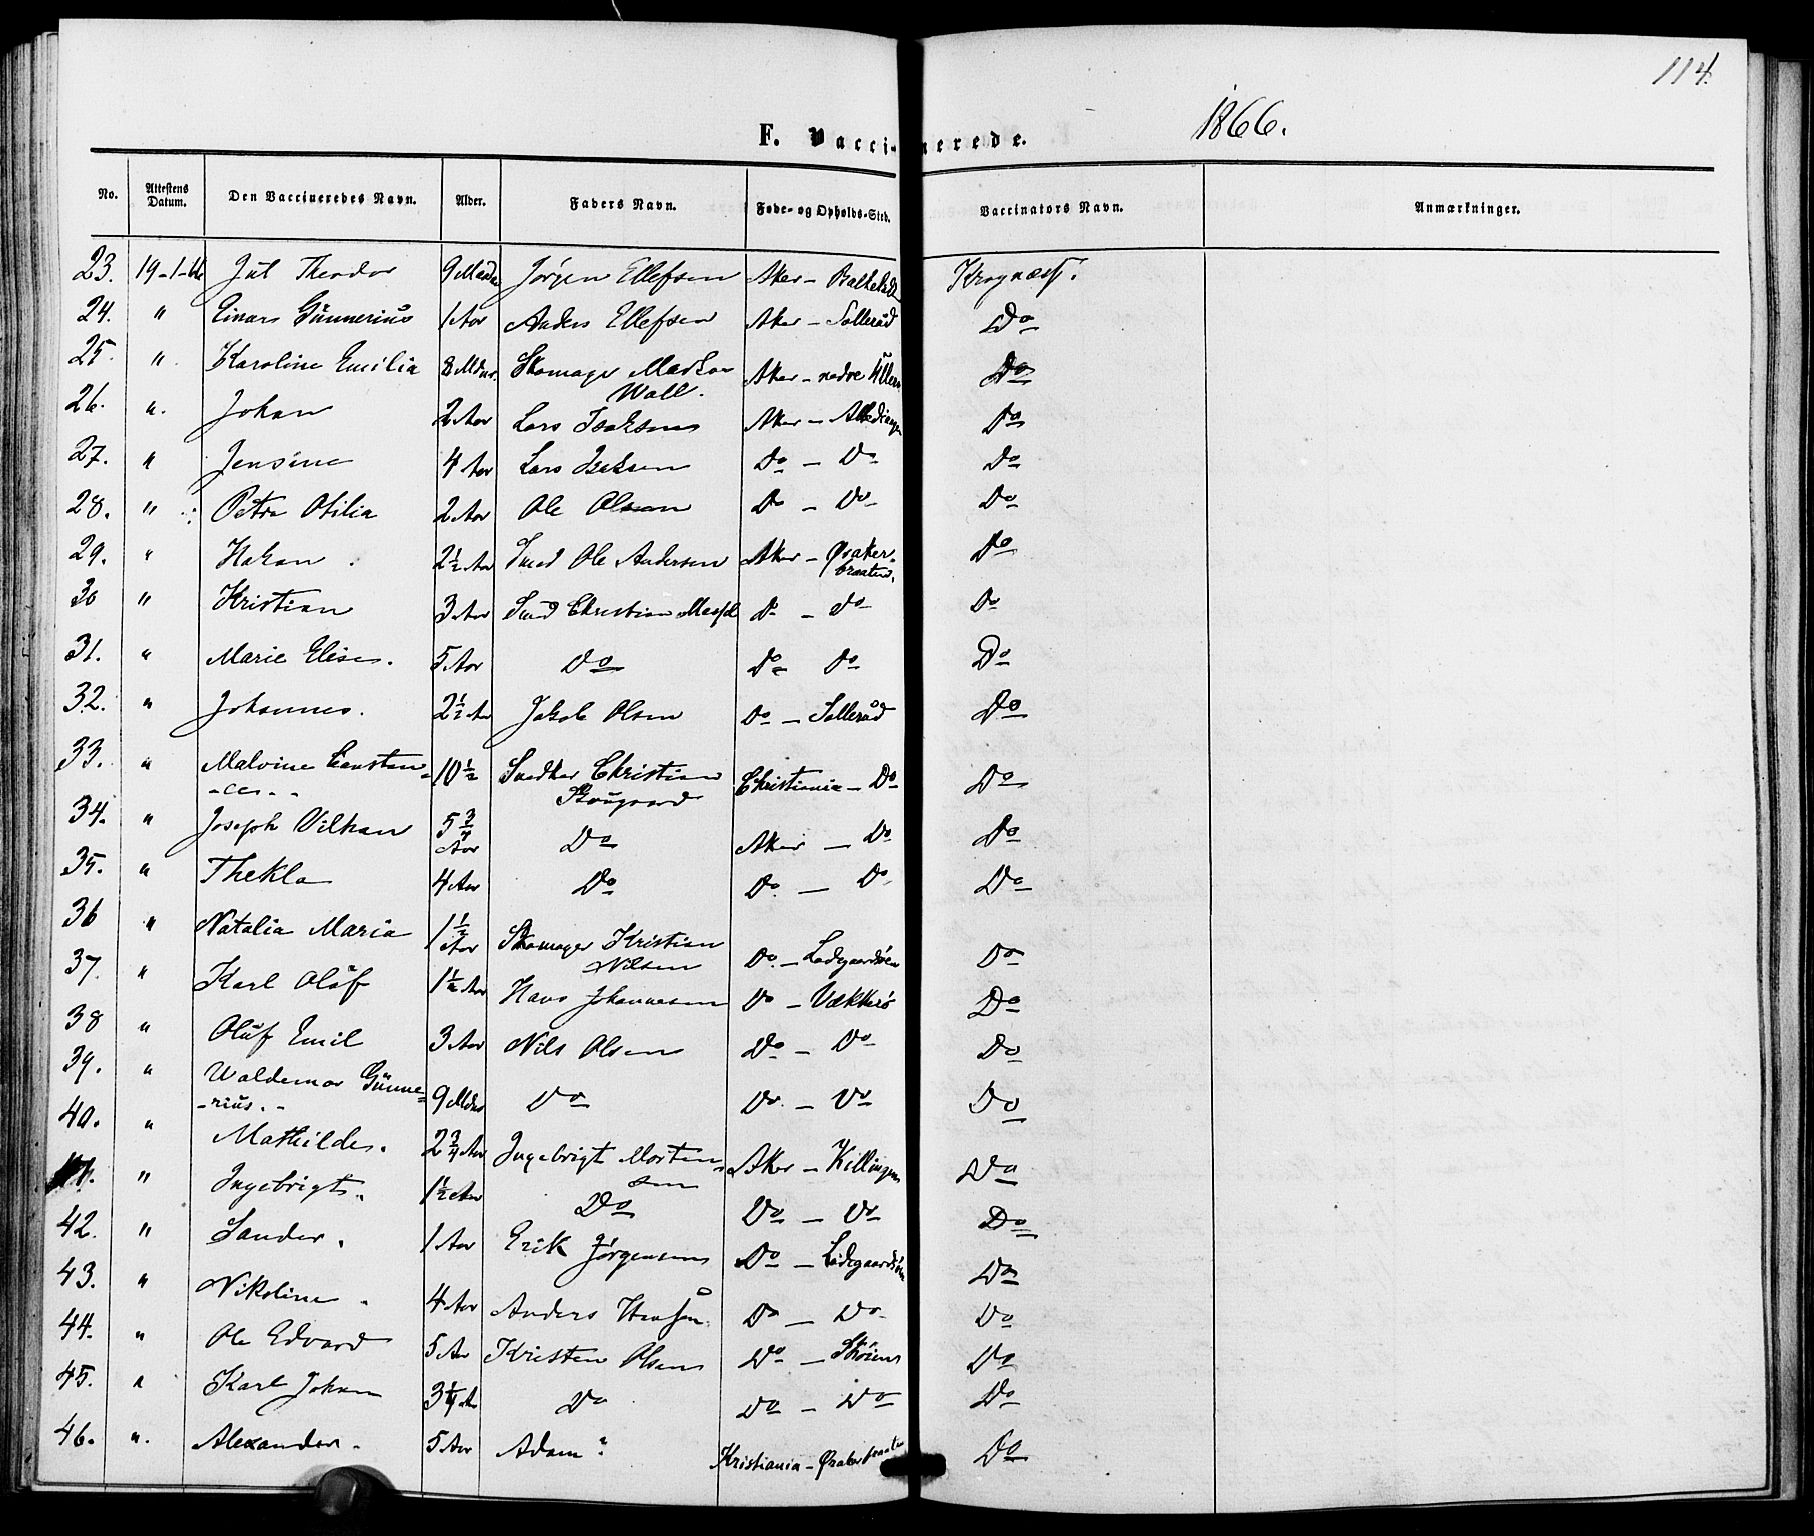 114.
1866.
F. Vacci- nerede.
No. Attestens Datum. Den Vaccineredes Navn. Alder. Faders Navn. Føde- og Opholds-Sted. Vaccinators Navn. Anmærkninger.
23. 19-1-66 Jul Theodor 9 Jørgen Ellefsen Aker -
24. " Einar Günnerius 1 Aar Anders Ellefsen Aker - Solleråd Do
25. " Karoline Emilia 8 Mdnr. Skomager Aker - nedre Ullern Do
Wall.
26. ". Johan 2 Aar Lars Isaksen Aker - Do
27. " Jensine 4 Aar Lars Isaksen Do - Do Do
28. " Petra Otilia 2 Aar Ole Olsen Do - Do Do
29. " Hakan 2 1/2 Aar Smed Ole Andersen Aker - Øraker- Do
braaten.
30 " Kristian 3 Aar Smed Christian Do - do Do
31. " Marie Elise. 5 Aar Do Do - Do Do
32. " Johannes. 2 1/2 Aar Jakob Olsen Do - Solleråd Do
33. " Malvine Constan- 10 1/2 Snedker Christian Christiania - Do Do
-ce. - Skougaard
34. " Joseph Vilhan 5 3/4 Aar Do Aker - Do Do
35. " Thekla 4 Aar Do Do - Do Do
36 " Natalia Maria 1 1/2 Aar Skomager Kristian Do - Ladegaardsøen Do
Nilsen
37. " Karl Olaf 1 1/2 Aar Hans Johannesen Do - Vækkerø Do
38 " Oluf Emil 3 Aar Nils Olsen Do - Do Do
39. " Waldemar Günne- 9 Mdnr Do Do - Do Do
-rius. -
40. " Mathilde. 2 3/4 Aar Ingebrigt Morten- Aker - Killingen Do
sen
41. " Ingebrigt. 1 1/2 Aar Do Do - Do Do
42. " Sander. 1 Aar Erik Jørgensen Do - Ladegaardsøen Do
43. " Nikoline. 4 Aar Anders Hansen Do - Do Do
44. " Ole Edvard 5 Aar Kristen Olsen Do - Skøien Do
45. " Karl Johan 3 1/4 Aar Do Do - Do Do
46. ". Alexander. 5 Aar Adam ? Kristiania - Ørakerbraaten Do